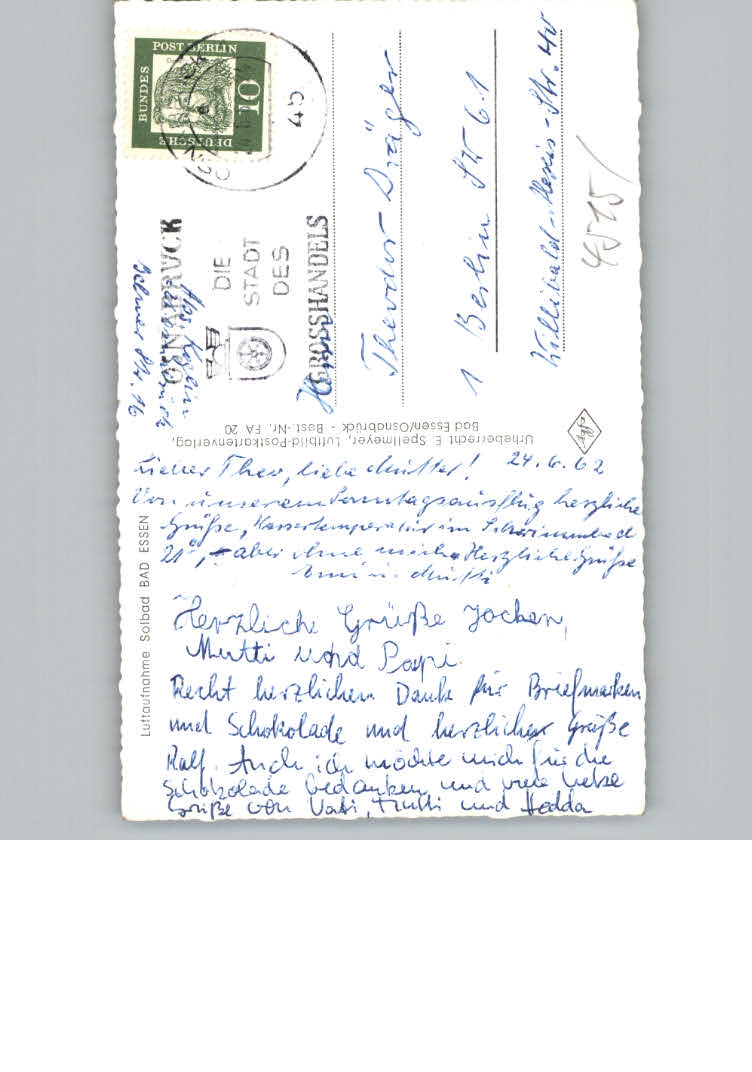 DEUTSCHE
BUNDES
POST BERLIN
10
45
OSNABRÜCK
DIE
STADT
DES
GROSSHANDELS
Abs.
Osnabrück
Str. 16
Herrn
Theodor Dräger
1 Berlin SW 61
Willibald-Alexis-Str. 40
4515/
Urheberrecht E. Spellmeyer, Luftbild-Postkartenverlag,
Bad Essen/Osnabrück - Best.-Nr. FA 20
Luftaufnahme Solbad BAD ESSEN
Lieber Theo, liebe Mutter! 24.6.62
Von unserem Sonntagsausflug herzliche
Grüße, Wassertemperatur im Schwimmbad
21°, – aber ohne mich. Herzliche Grüße
u. Mutti
Herzliche Grüße Jochen,
Mutti und Papi.
Recht herzlichen Dank für Briefmarken
und Schokolade und herzliche Grüße
Ralf. Auch ich möchte mich für die
Schokolade bedanken und viele liebe
Grüße von Vati, Mutti und Hedda